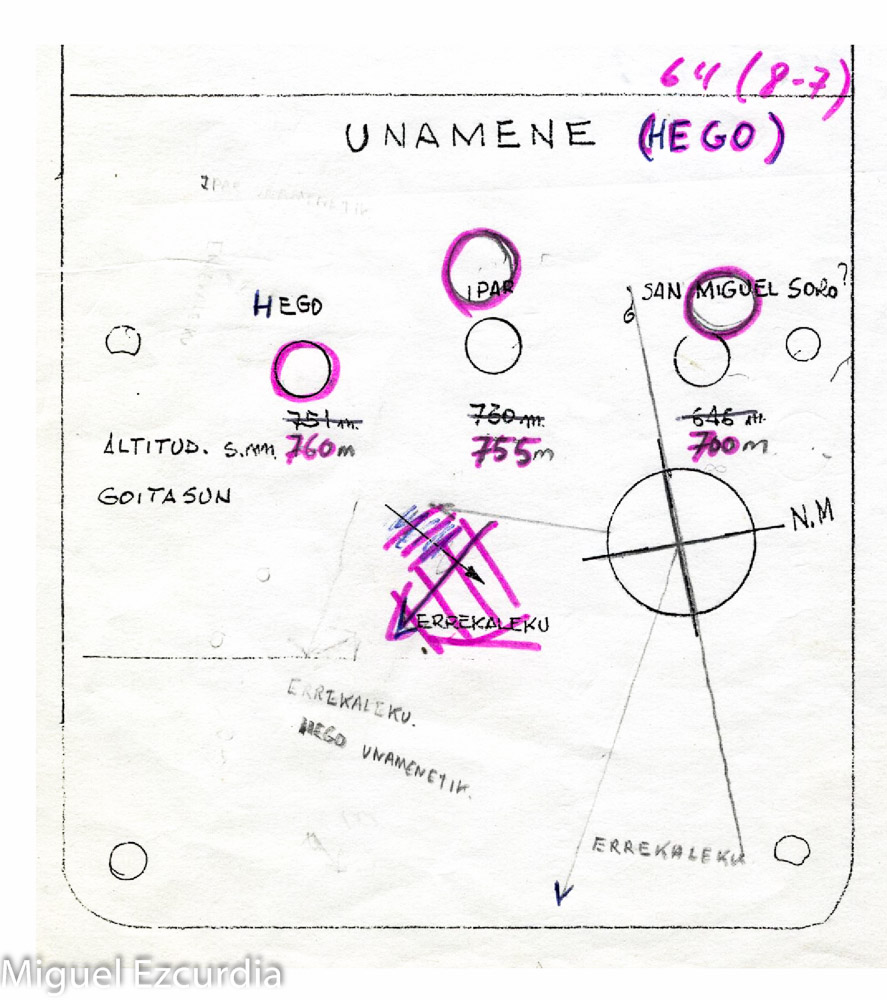 64 (8-7)
UNAMENE (HEGO)
IPAR
HEGO
IPAR
SAN MIGUEL SORO?
751 m.
730 m.
646 m.
ALTITUD. S.mm. 760m
755m
700m
GOITASUN
N.M
ERREKALEKU
ERREKALEKU.
HEGO UNAMENETIK.
ERREKALEKU
Miguel Ezcurdia